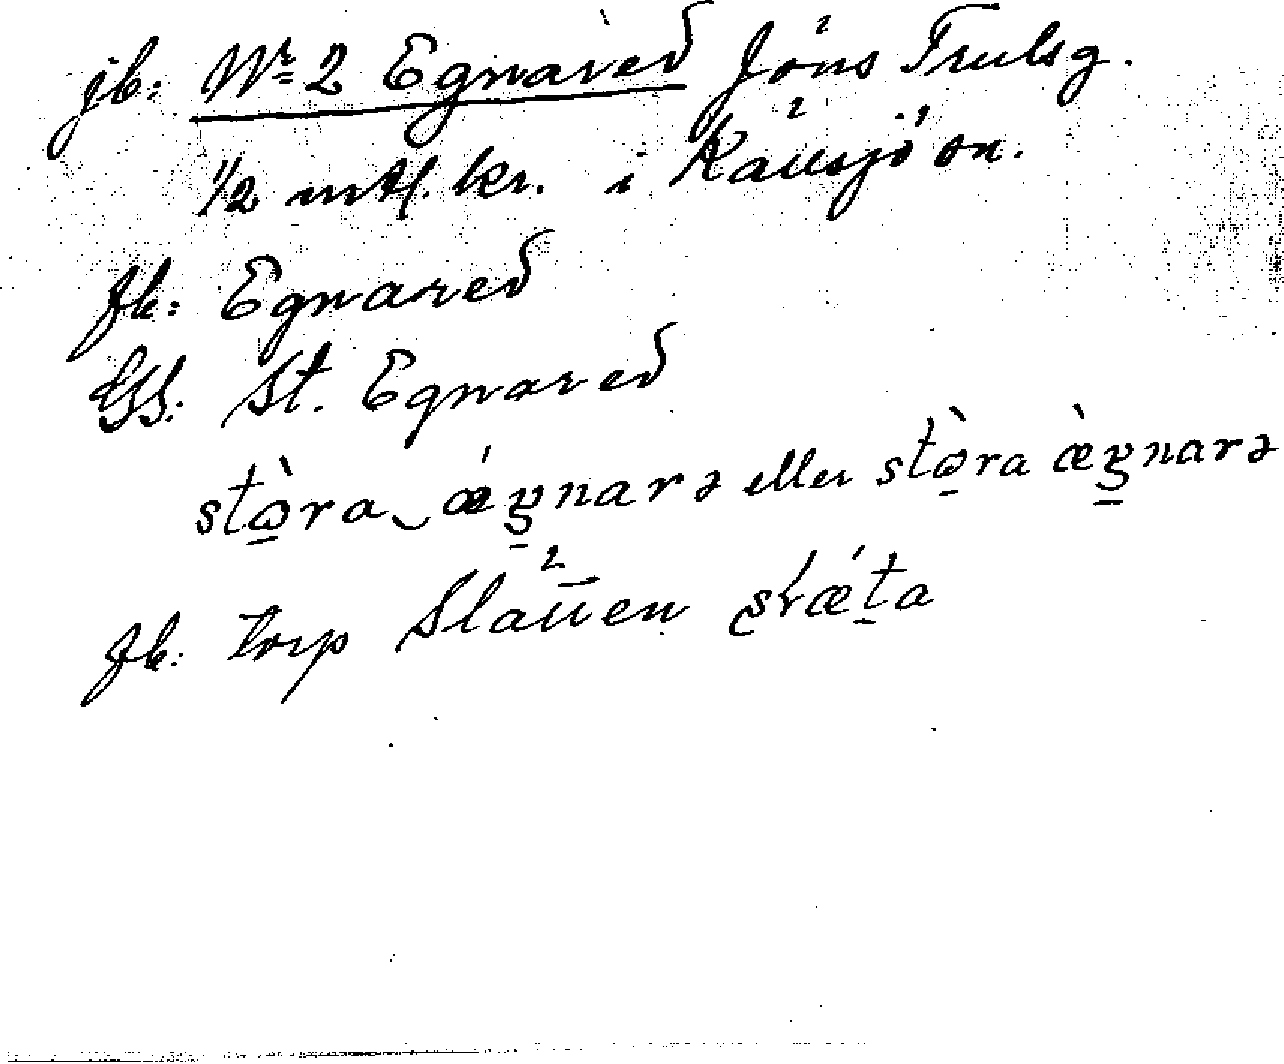 jb: Nr 2 Egnared Jöns Trulsg.
1/2 mtl. kr. i Källsjö sn.
fk: Egnared
GS: St. Egnared
stòra ǽgnarə eller stòra æ̀gnarə
fk: torp Slätten slǽta